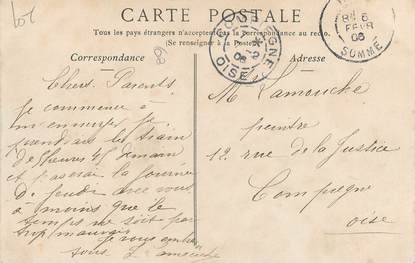 Lot
CARTE POSTALE
Tous les pays étrangers n'acceptent pas la correspondance au recto.
(Se renseigner à la Poste)
Correspondance
Adresse
OISE
FEVR
SOMME
Chers Parents
je commence à
m'ennuyer je
prendrai le train
de heures 45 demain
et passerai la journée
De jeudi avec vous
à moins que le
temps ne soit par
trop mauvais
je vous embra
M Lamouche
peintre
12 rue de la Justice
Compiègne
oise